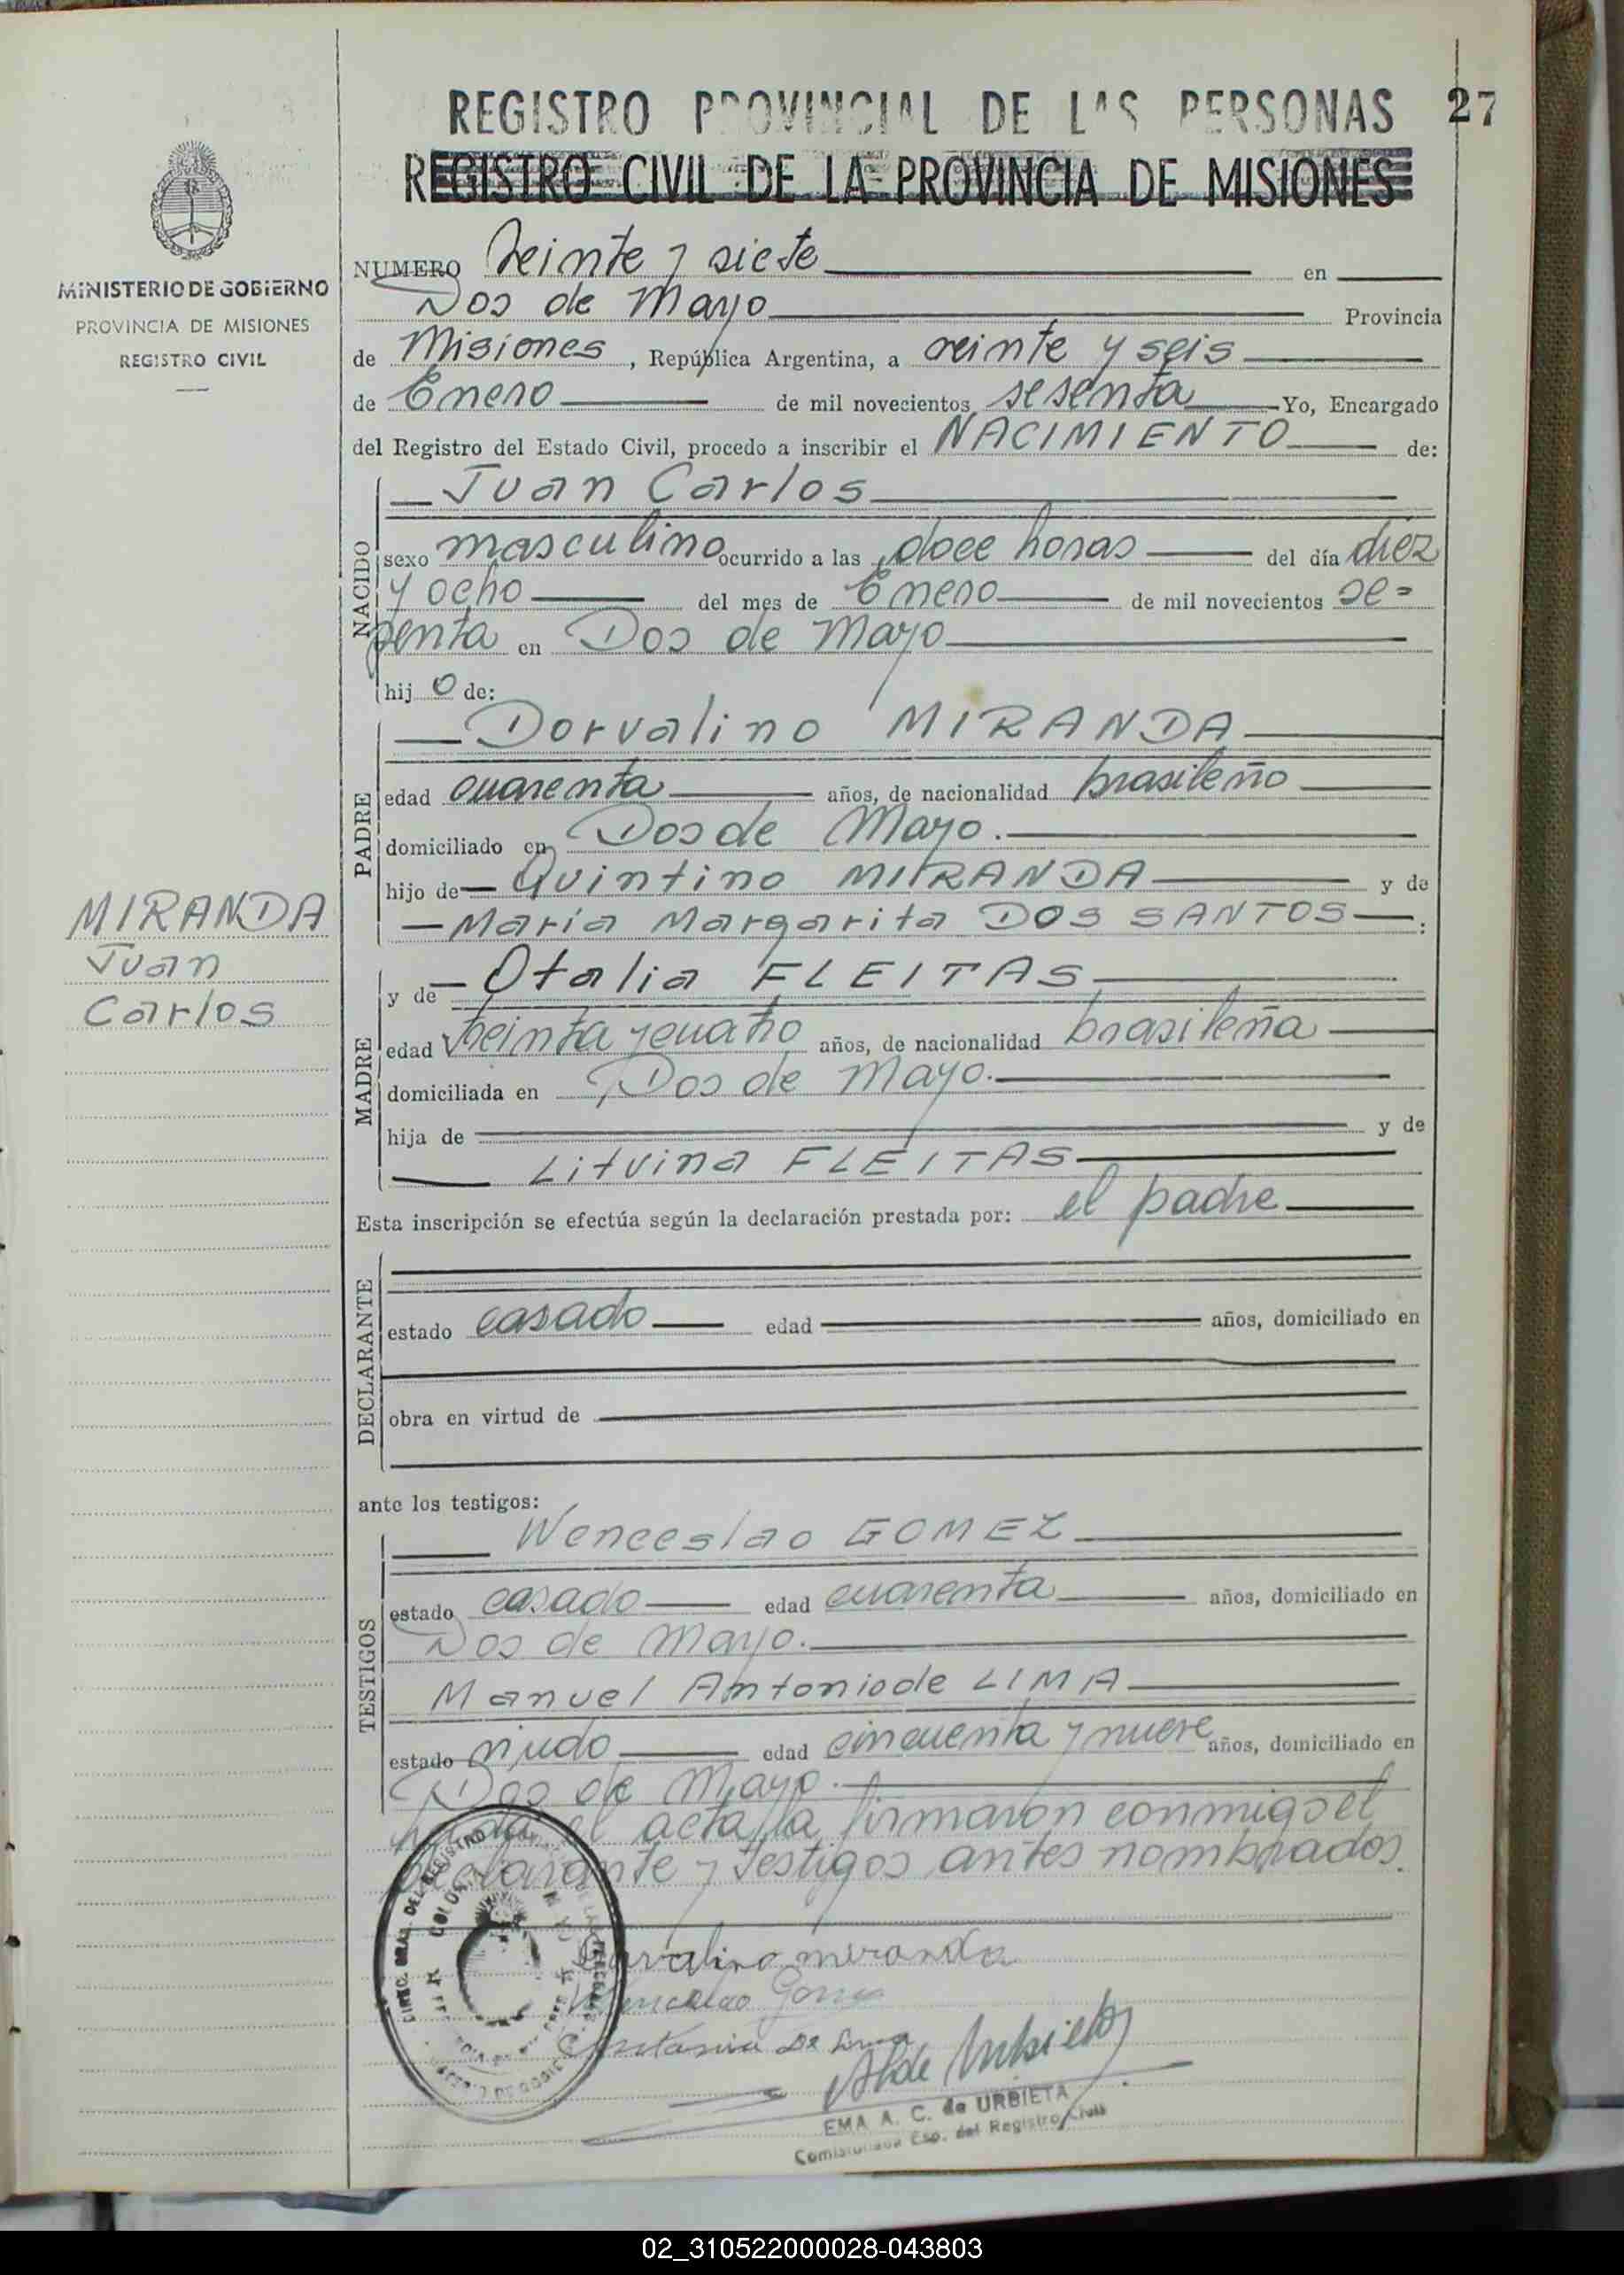 REGISTRO PROVINCIAL DE LAS PERSONAS 27
REGISTRO CIVIL DE LA PROVINCIA DE MISIONES
MINISTERIO DE GOBIERNO
PROVINCIA DE MISIONES
REGISTRO CIVIL
NUMERO Veinte y siete en
Dos de Mayo Provincia
de Misiones, República Argentina, a veinte y seis
de Enero de mil novecientos sesenta Yo, Encargado
del Registro del Estado Civil, procedo a inscribir el NACIMIENTO de:
NACIDO
Juan Carlos
sexo masculino ocurrido a las doce horas del día diez
y ocho del mes de Enero de mil novecientos se=
senta en Dos de Mayo
hijo de:
PADRE
Dorvalino MIRANDA
edad cuarenta años, de nacionalidad brasileño
domiciliado en Dos de Mayo.
hijo de Quintino MIRANDA y de
María Margarita DOS SANTOS :
MIRANDA
Juan
Carlos
MADRE
y de Otalia FLEITAS
edad treinta y cuatro años, de nacionalidad brasileña
domiciliada en Dos de Mayo.
hija de y de
Litvina FLEITAS
Esta inscripción se efectúa según la declaración prestada por: el padre
DECLARANTE
estado casado edad años, domiciliado en
obra en virtud de
ante los testigos:
TESTIGOS
Wenceslao GOMEZ
estado casado edad cuarenta años, domiciliado en
Dos de Mayo.
Manuel Antonio de LIMA
estado viudo edad cincuenta y nueve años, domiciliado en
Dos de Mayo.
el acta la firmaron conmigo el
declarante y testigos antes nombrados.
Dorvalino miranda
EMA A. C. de URBIETA
Esp. del Registro Civil
02_310522000028-043803